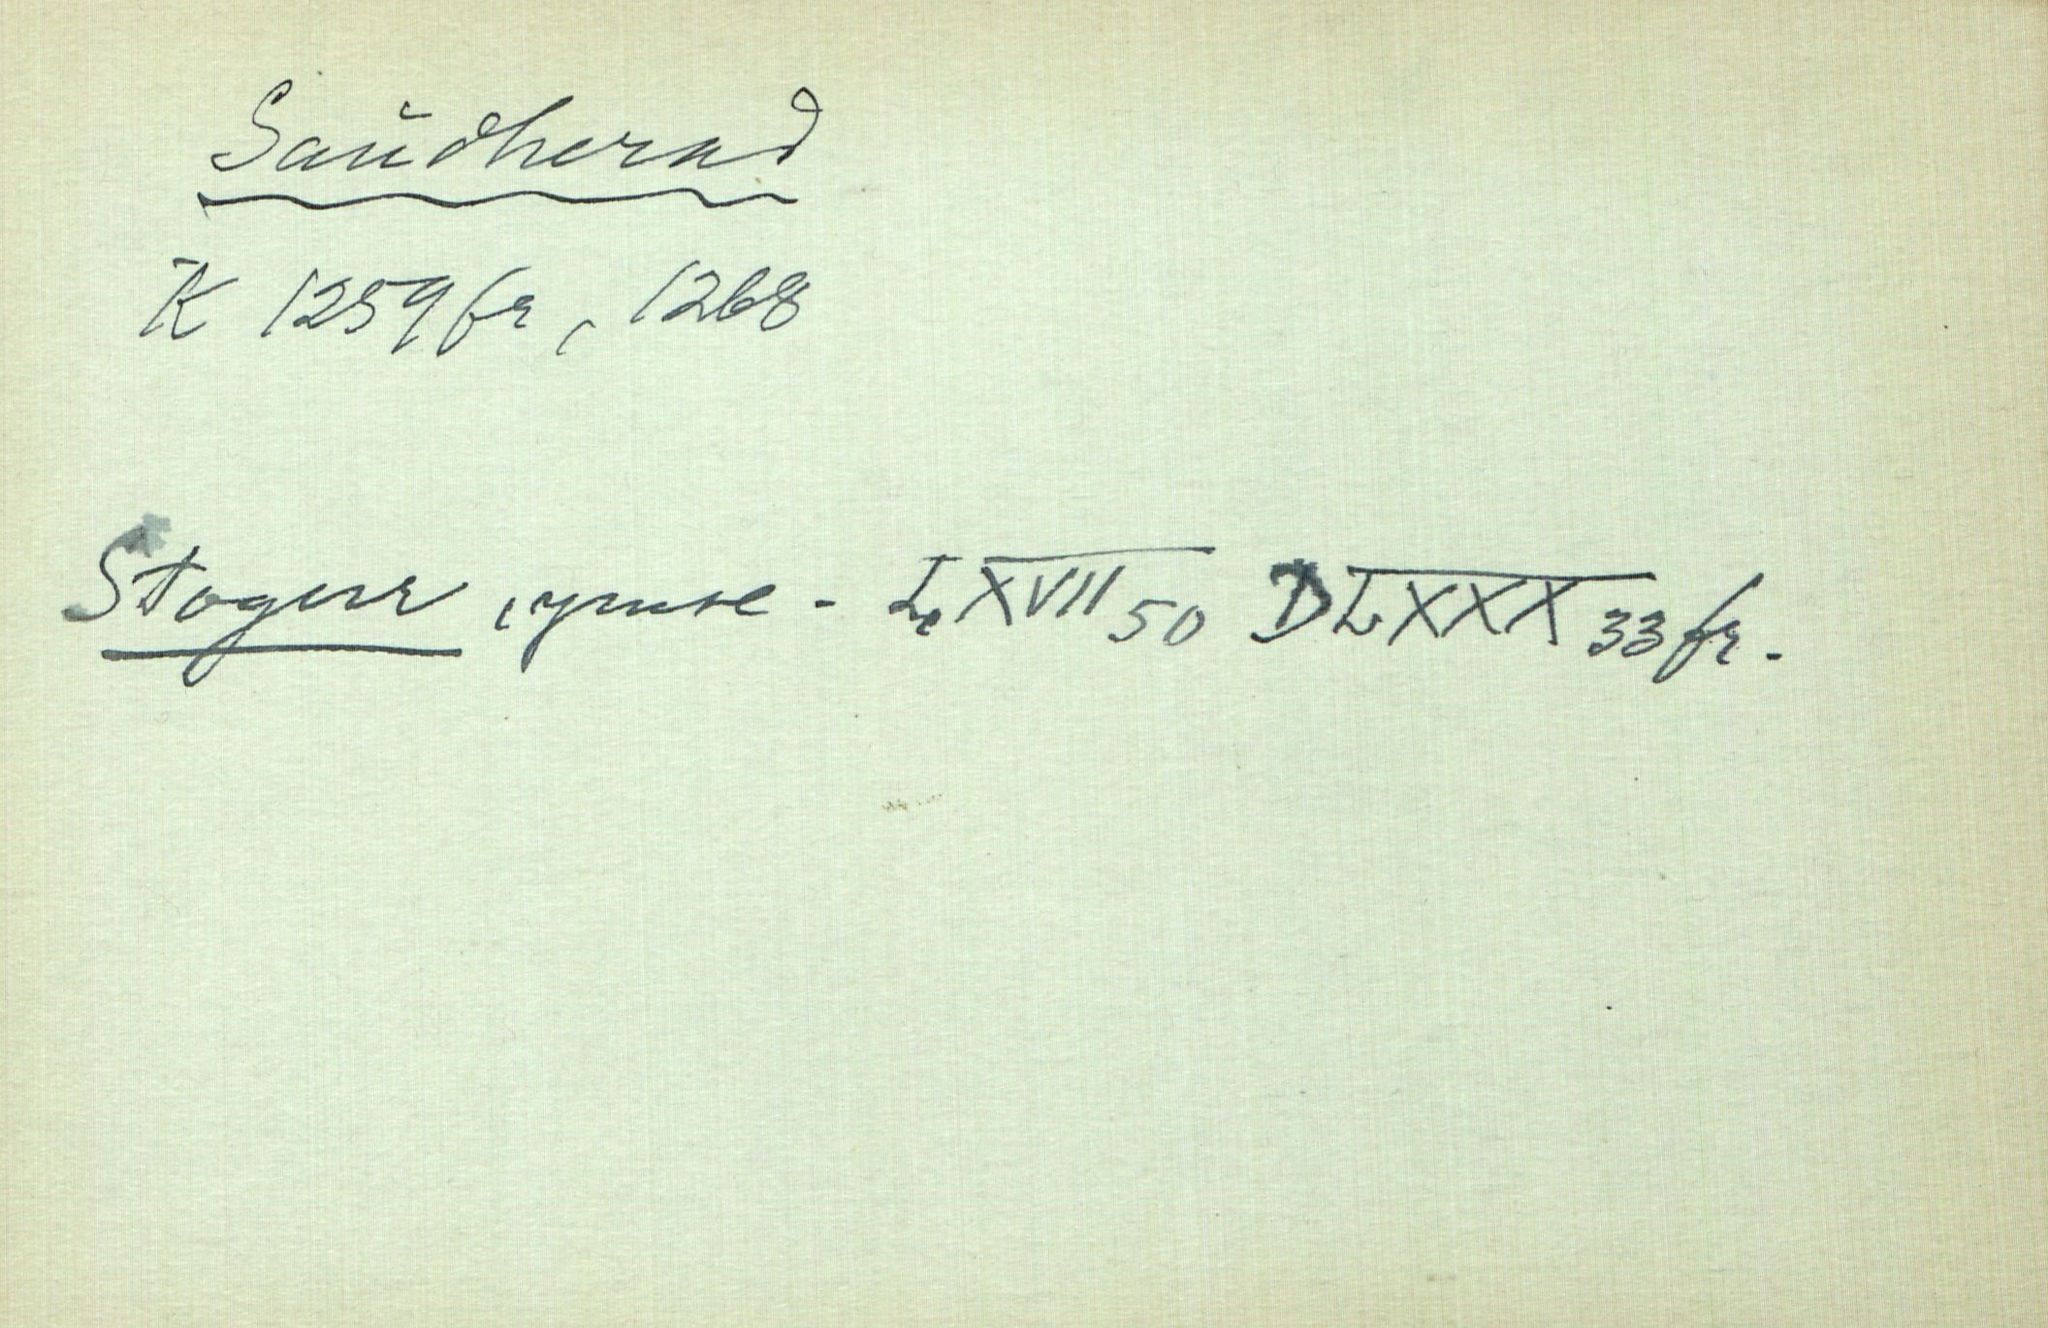 Saudherad
K 1259 fr, 1268
Stogerr, - LXVII 50 DLXXX 33 fr.